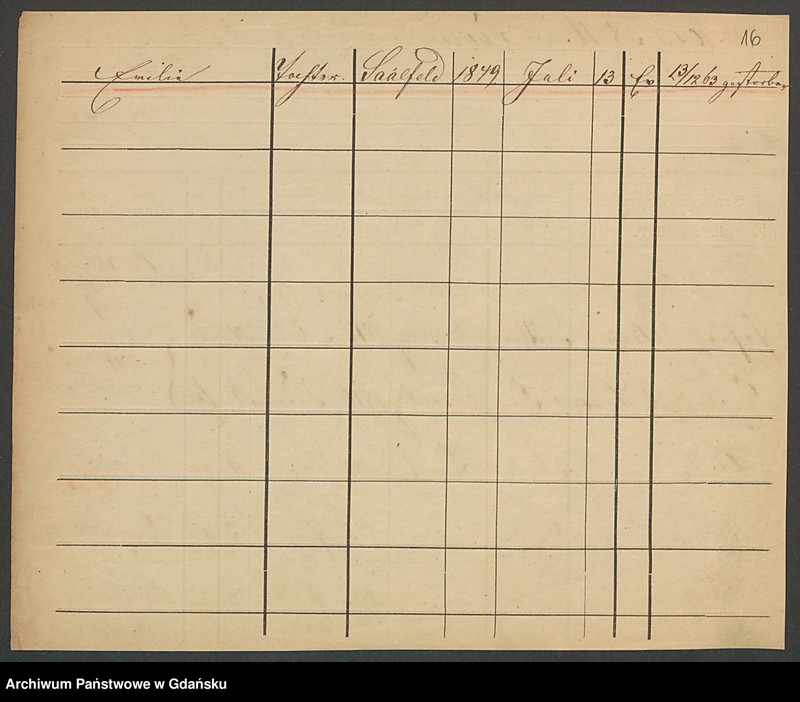 16
Emilie Tochter. Saalfeld 1849. Juli 13 Ev 13/12 63 gestorben
Archiwum Państwowe w Gdańsku